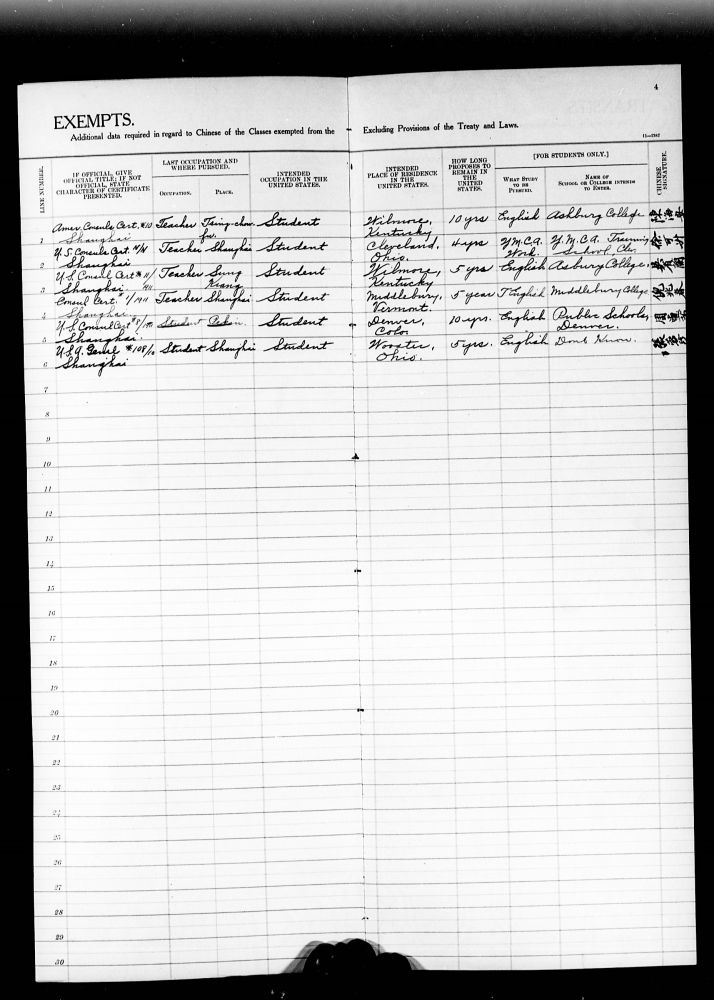 4
EXEMPTS.
Additional data required in regard to Chinese of the Classes exempted from the Excluding Provisions of the Treaty and Laws.
11—2767
LINE NUMBER.
IF OFFICIAL, GIVE
OFFICIAL TITLE; IF NOT
OFFICIAL, STATE
CHARACTER OF CERTIFICATE
PRESENTED.
LAST OCCUPATION AND
WHERE PURSUED.
OCCUPATION.
PLACE.
INTENDED
OCCUPATION IN THE
UNITED STATES.
INTENDED
PLACE OF RESIDENCE
IN THE
UNITED STATES.
HOW LONG
PROPOSES TO
REMAIN IN
THE
UNITED
STATES.
[FOR STUDENTS ONLY.]
WHAT STUDY
TO BE
PURSUED.
NAME OF
SCHOOL OR COLLEGE INTENDS
TO ENTER.
CHINESE
SIGNATURE.
Amer. Consuls Cert. #10 Teacher Tsing-chow Student Wilmore, 10 yrs English Ashbury College
1 Shanghai fu. Kentucky
U.S. Consuls Cert. Teacher Shanghai Student Cleveland, 4 yrs Y.M.C.A. Y.M.C.A. Training
2 Shanghai Ohio. Work. School, Cle
U.S. Consul Cert # 11/ Teacher Sung Student Wilmore, 5 yrs English Asbury College,
3 Shanghai. 1911 Kiang Kentucky
Consul Cert. Teacher Shanghai Student Middlebury, 5 year English Middlebury College
4 Shanghai. Vermont.
U.S Consul Cert Student Pekin. Student Denver, 10 yrs. English Public Schools,
5 Shanghai. Color Denver.
U.S.A. Genrl #108/ Student Shanghai Student Wooster, 5 yrs. English Dont Know.
6 Shanghai Ohio.
7
8
9
10
11
12
13
14
15
16
17
18
19
20
21
22
23
24
25
26
27
28
29
30